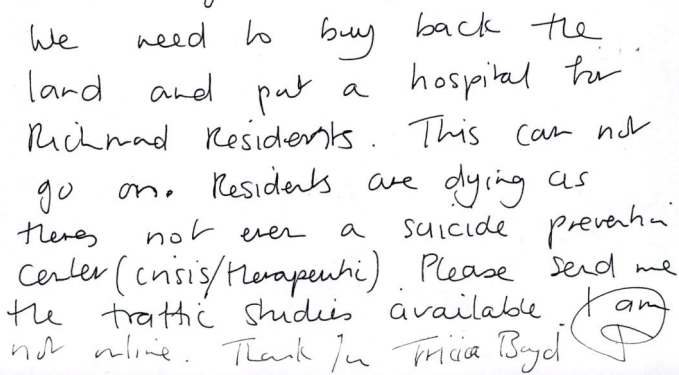 We need to buy back the
land and put a hospital for
Richmond Residents. This can not
go on. Residents are dying as
theres not even a suicide prevention
center (crisis/therapeutic) Please send me
the traffic studies available. I am
not online. Thank You Tricia Boyd